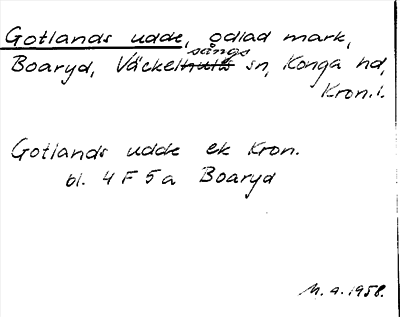 Gotlands udde, odlad mark,
sångs
Boaryd, Väckelhults sn, Konga hd,
Kron.l.
Gotlands udde ek Kron.
bl. 4 F 5 a Boaryd
M. a. 1958.